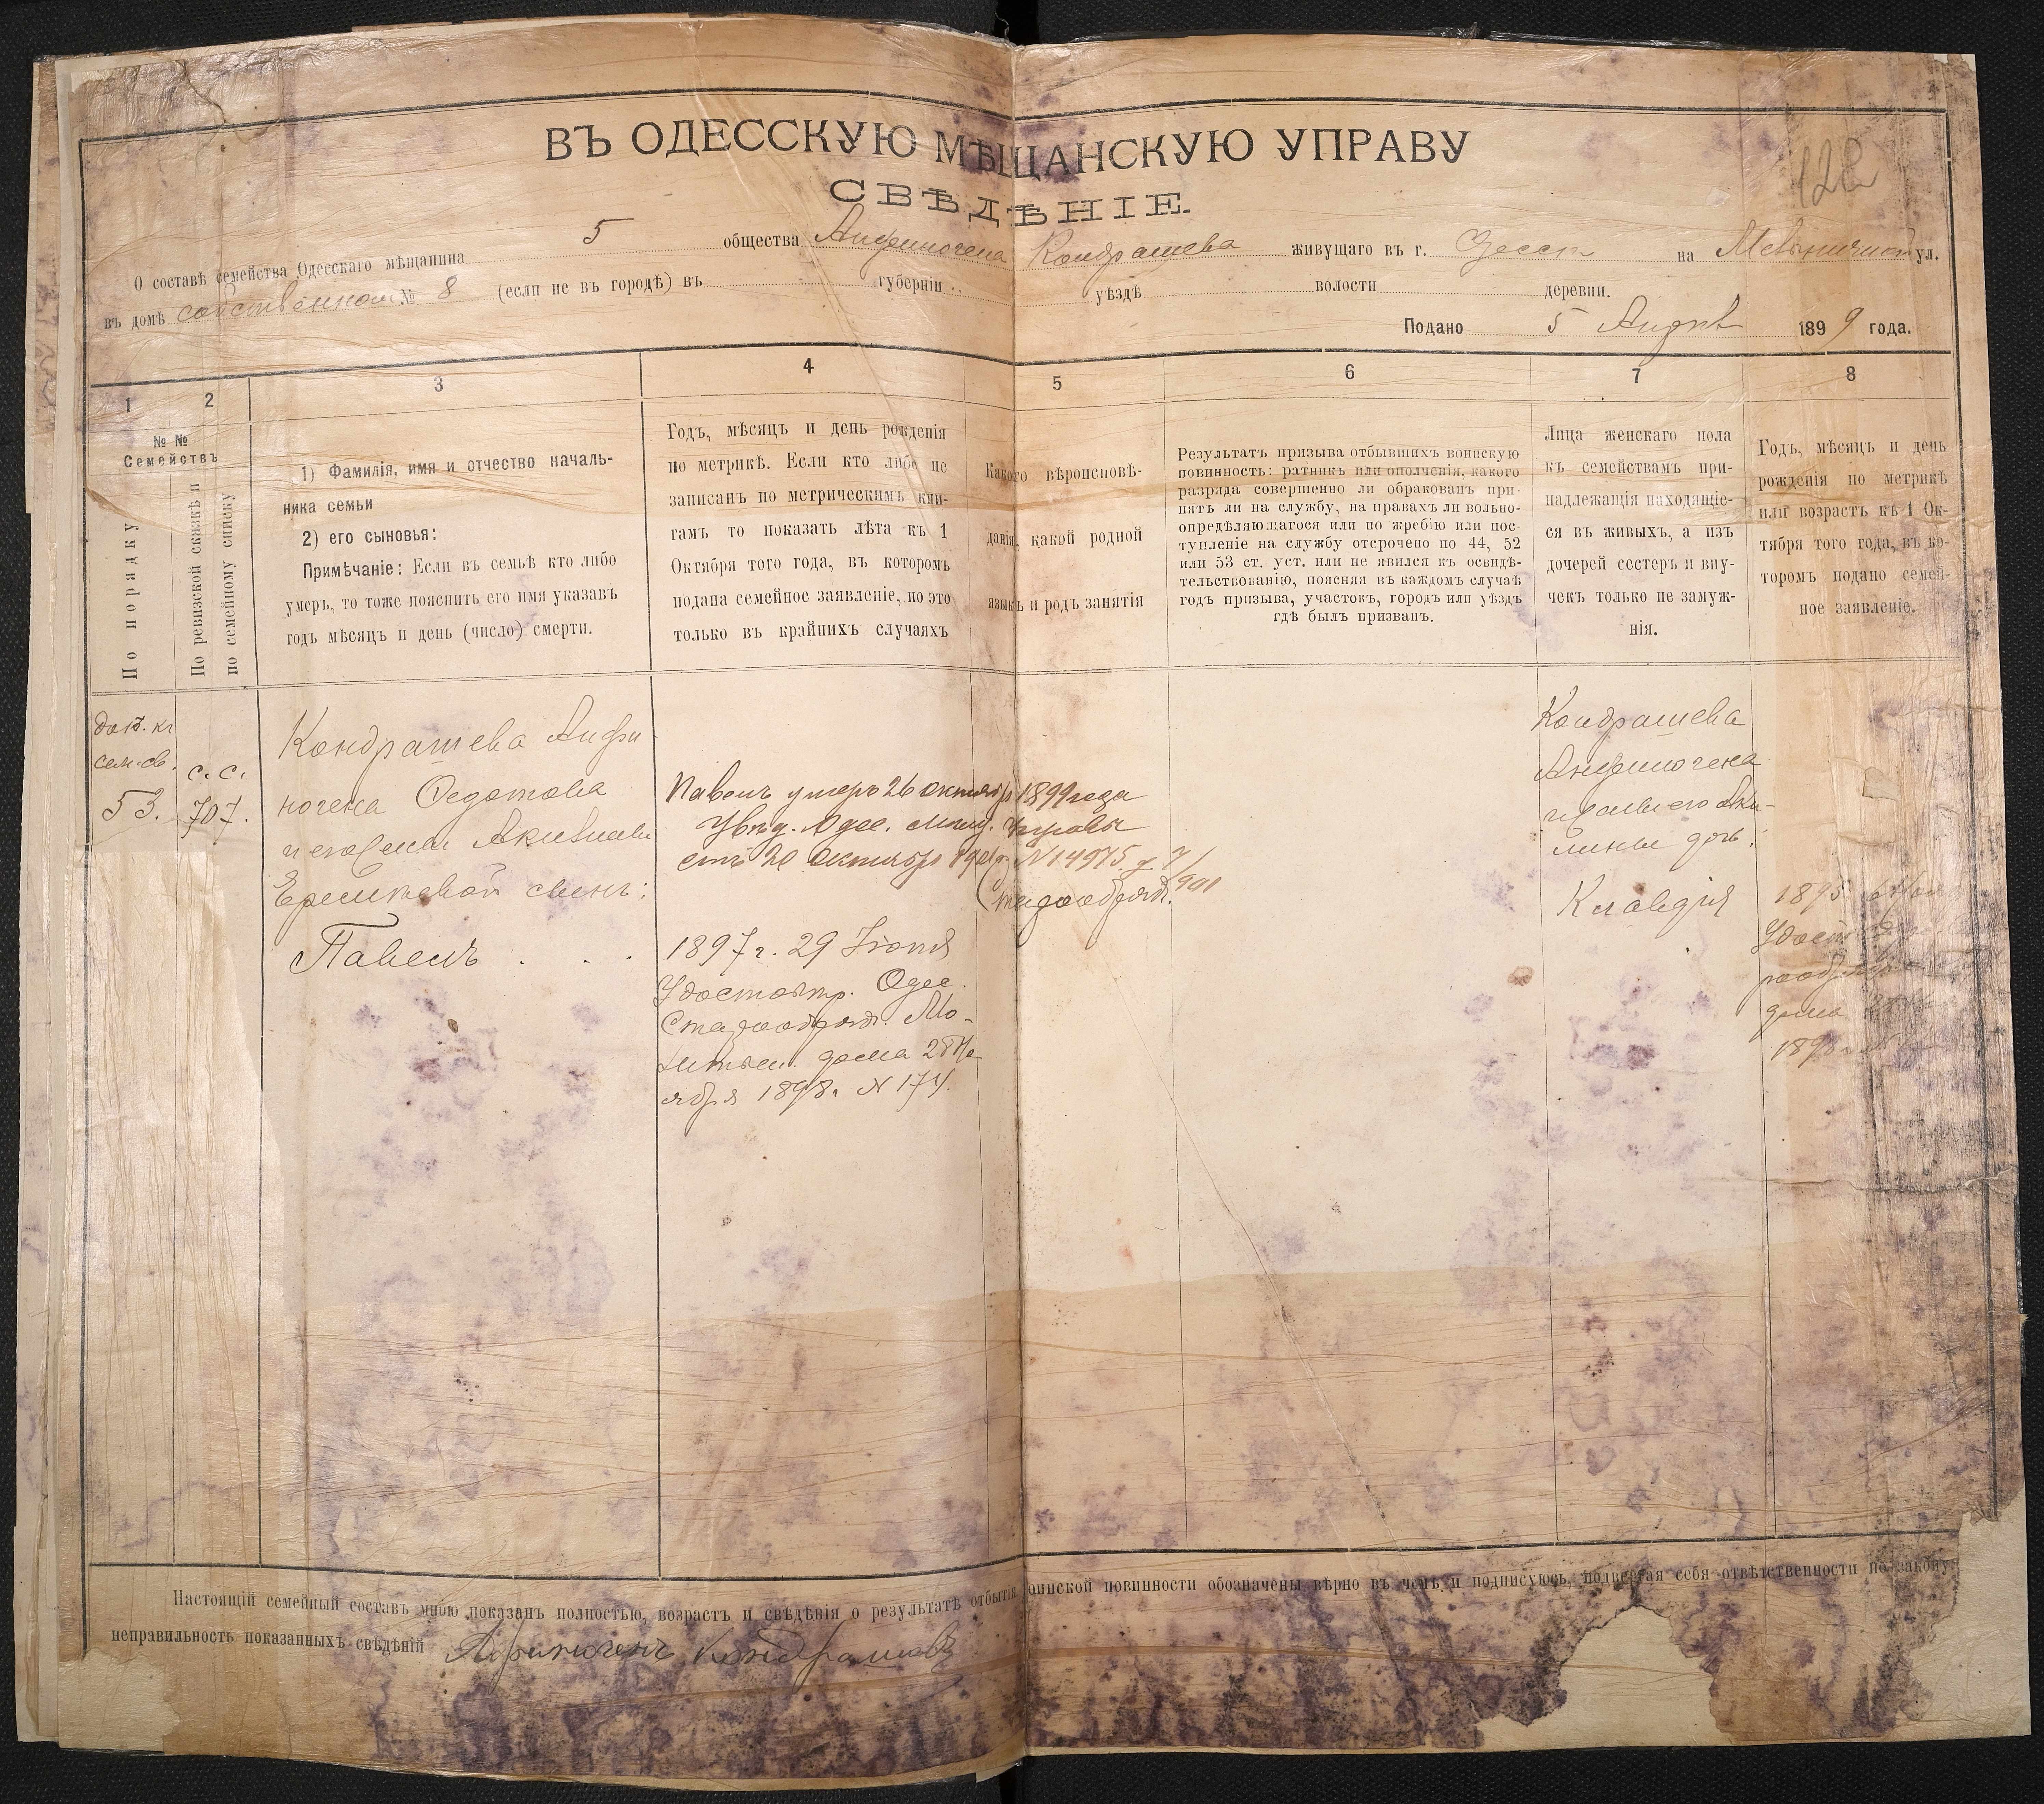 ВЪ ОДЕССКУЮ МѢЩАНСКУЮ УПРАВУ
СВѢДѢНІЕ.
О составѣ семейства Одесскаго мѣщанина 5 общества Анфиногена Кондрашева живущаго въ г. Одессѣ на ул.
въ домѣ собственном № 8 (если не въ городѣ) въ губерніи уѣздѣ волости деревни.
Подано 5 1899 года.
1
2
3
4
5
6
7
8
№ №
Семействъ
По порядку
По ревизской сказкѣ и
по семейному списку
1) Фамилія, имя и отчество началь-
ника семьи
2) его сыновья:
Примѣчаніе: Если въ семьѣ кто либо
умеръ, то тоже пояснить его имя указавъ
годъ мѣсяцъ и день (число) смерти.
Годъ, мѣсяцъ и день рожденія
по метрикѣ. Если кто либо не
записанъ по метрическимъ кни-
гамъ то показать лѣта къ 1
Октября того года, въ которомъ
подана семейное заявленіе, но это
только въ крайнихъ случаяхъ
Какого вѣроисповѣ-
данія, какой родной
языкъ и родъ занятія
Результатъ призыва отбывшихъ воинскую
повинность: ратникъ или ополченія, какого
разряда совершенно ли обракованъ при-
нятъ ли на службу, на правахъ ли вольно-
опредѣляющагося или по жребію или пос-
тупленіе на службу отсрочено по 44, 52
или 53 ст. уст. или не явился къ освидѣ-
тельствованію, поясняя въ каждомъ случаѣ
годъ призыва, участокъ, городъ или уѣздъ
гдѣ былъ призванъ.
Лица женскаго пола
къ семействамъ при-
надлежащія находящіе-
ся въ живыхъ, а изъ
дочерей сестеръ и вну-
чекъ только не замуж-
нія.
Годъ, мѣсяцъ и день
рожденія по метрикѣ
или возрастъ къ 1 Ок-
тября того года, въ ко-
торомъ подано семей-
ное заявленіе.
53.
с. с.
707.
Кондрашева Анфи-
ногена Федотова
Ереминовой сынъ:
Павелъ . . .
Павелъ умеръ 26 октября 1899 года
Увѣд. Одес. Мѣщ. Управы
отъ 20 Октября N 14975
Старообряд.
1897 г. 29 Іюня
Удостовѣр. Одес.
Старообряд. Мо-
литвен. дома 28 Но-
ября 1898 г N 174.
Кондрашева
Анфиногена
и жены его Аки-
лины дочь:
Клавдія
1895
Удост
дома
Настоящій семейный составъ мною показанъ полностью, возрастъ и свѣдѣнія о результатѣ отбытія воинской повинности обозначены вѣрно въ чемъ и подписуюсь, подвергая себя отвѣтственности по закону
неправильность показанныхъ свѣдѣній Афиногенъ Кондрашовъ